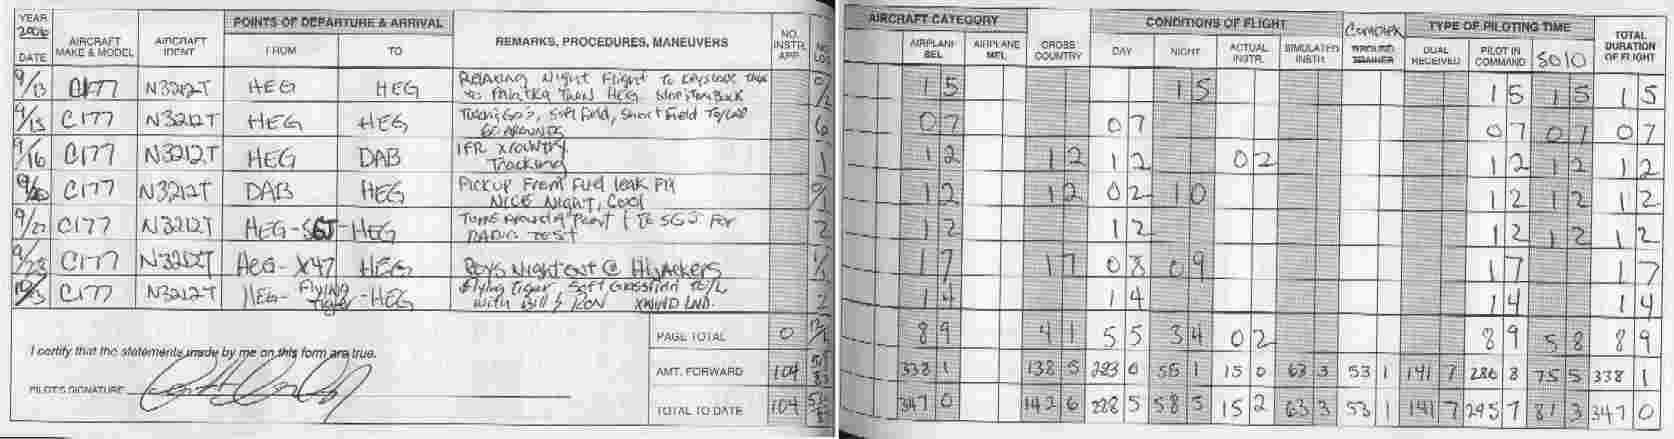 YEAR 2006 DATE AIRCRAFT MAKE & MODEL AIRCRAFT IDENT POINTS OF DEPARTURE & ARRIVAL FROM TO REMARKS, PROCEDURES, MANEUVERS NO. INSTR. APP. NO. LDG. AIRCRAFT CATEGORY AIRPLANE SEL AIRPLANE MEL CROSS COUNTRY CONDITIONS OF FLIGHT DAY NIGHT ACTUAL INSTR. SIMULATED INSTR. Complex GROUND TRAINER TYPE OF PILOTING TIME DUAL RECEIVED PILOT IN COMMAND SOLO TOTAL DURATION OF FLIGHT
9/13 C177 N3212T HEG HEG Relaxing Night Flight To Keystone then 1 5 1 5 1 5 1 5 1 5
to Palatka Then HEG
9/15 C177 N3212T HEG HEG Soft field, Short field 6 0 7 0 7 0 7 0 7 0 7
GO AROUNDS
9/16 C177 N3212T HEG DAB IFR 1 1 2 1 2 1 2 0 2 1 2 1 2 1 2
Tracking
9/20 C177 N3212T DAB HEG Pickup From Fuel leak 1 2 1 2 0 2 1 0 1 2 1 2 1 2
NICE Night, Cool
9/22 C177 N3212T HEG-SGJ-HEG Turns Around a Point & To SGJ For 2 1 2 1 2 1 2 1 2 1 2
RADIO TEST
9/23 C177 N3212T HEG- X47 HEG Boys Night out @ HiJackers 1 7 1 7 0 8 0 9 1 7 1 7
C177 N3212T HEG- Flying Tiger -HEG Flying Tiger, Soft Grassfield TO/L 2 1 4 1 4 1 4 1 4
with Bill & RON XWIND LND.
PAGE TOTAL 0 8 9 4 1 5 5 3 4 0 2 8 9 5 8 8 9
I certify that the statements made by me on this form are true.
AMT. FORWARD 104 338 1 138 5 223 0 55 1 15 0 63 3 53 1 141 7 286 8 75 5 338 1
PILOT'S SIGNATURE
TOTAL TO DATE 104 347 0 142 6 228 5 58 5 15 2 63 3 53 1 141 7 295 7 81 3 347 0